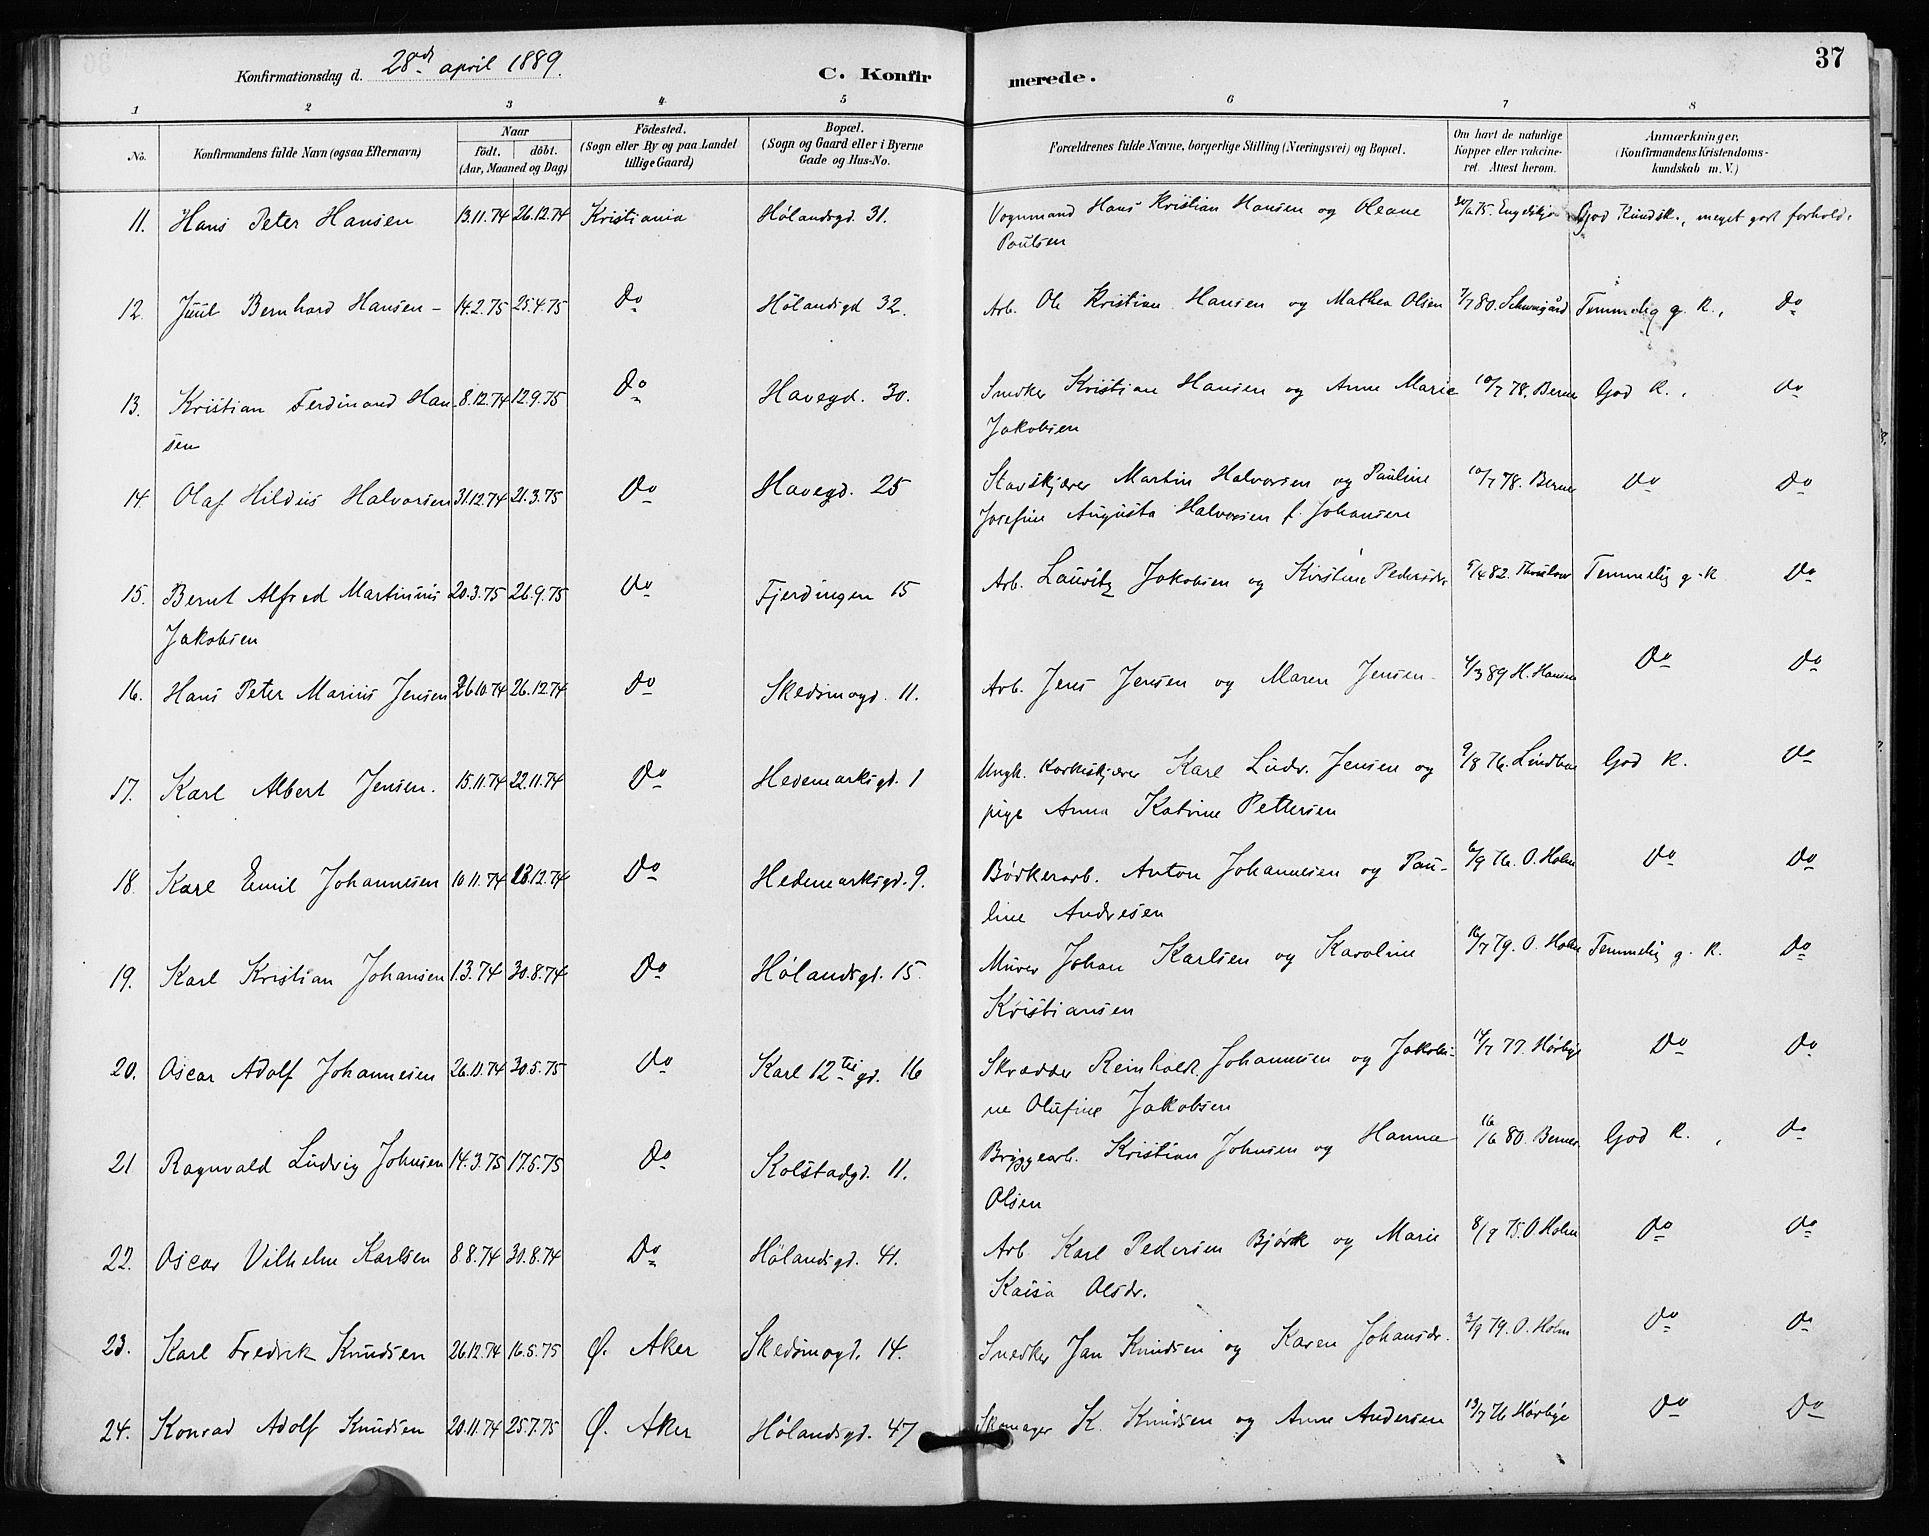 37
Konfirmationsdag d. 28de april 1889.
C. Konfirmerede.
1 2 3 4 5 6 7 8
No. Konfirmandens fulde Navn (ogsaa Efternavn) Naar födt. döbt. (Aar, Maaned og Dag) Födested. (Sogn eller By og paa Landet tillige Gaard) Bopæl. (Sogn og Gaard eller i Byerne Gade og Hus-No. Forældrenes fulde Navne, borgerlige Stilling (Næringsvei) og Bopæl. Om havt de naturlige Kopper eller vakcineret. Attest herom. Anmærkninger. (Konfirmandens Kristendomskundskab m. V.)
11. Hans Peter Hansen 13.11.74 26.12.74 Kristiania Hølandsgd. 31. Vognmand Hans Kristian Hansen og Oleane God Kundsk., meget godt forhold.
Paulsen
12. Juul Bernhard Hansen - 14.2.75 25.4.75 Do Hølandsgd 32. Arb. Ole Kristian Hansen og Mathea Olsen 7/7 80. Schweigård Temmelig g. K., Do
13. Kristian Ferdinand Han- 8.12.74 12.9.75 Do Havegd. 30. Snedker Kristian Hansen og Anne Marie 10/7 78. Berner God K., Do
sen Jakobsen
14. Olaf Hildus Halvorsen 31.12.74 21.3.75 Do Havegd. 25 Stavskjærer Martin Halvorsen og Pauline 10/7 78. Berner Do Do
Josefine Augusta Halvorsen f. Johansen
15. Bernt Alfred Martinius 20.3.75 26.9.75 Do Fjerdingen 15 Arb. Lauritz Jakobsen og Kirstine Pedersdr. 5/4 82. Thaulow Temmelig g. K Do
Jakobsen
16. Hans Peter Marius Jensen 26.10.74 26.12.74 Do Skedsmogd. 11. Arb. Jens Jensen og Maren Jensen 4/3 89 H. Hansen Do Do
17. Karl Albert Jensen. 15.11.74 22.11.74 Do Hedemarksgd. 1 Ungk. Korkskjærer Karl Ludv. Jensen og 9/8 76. God K. Do
pige Anna Katrine Pettersen
18. Karl Emil Johannesen 10.11.74 13.12.74 Do Hedemarksgd. 9. Bødkerarb. Anton Johannesen og Pau- 6/9 76. O. Holm Do Do
line Andresen
19. Karl Kristian Johansen 1.3.74 30.8.74 Do Hølandsgd. 15. Murer Johan Karlsen og Karoline 16/7 79. O. Holm Temmelig g. K. Do
Kristiansen
20. Oscar Adolf Johannesen 26.11.74 30.5.75 Do Karl 12tes gd. 16 Skrædder Reinholdt Johannesen og Jakobi- 14/7 77. Hørbye Do Do
ne Olufine Jakobsen
21 Ragnvald Ludvig Johnsen 14.3.75 17.5.75 Do Kolstadgd. 11. Bryggearb. Kristian Johnsen og Hanna 16/6 80. Berner. God K., Do
Olsen
22. Oscar Vilhelm Karlsen 8.8.74 30.8.74 Do Hølandsgd. 41. Arb. Karl Pedersen Bjørk og Marie 8/9 75. O. Holm Do Do
Kaisa Olsdr.
23. Karl Fredrik Knudsen 26.12.74 16.5.75 Ø. Aker Skedsmogd. 14. Snedker Jan Knudsen og Karen Johansdr. 2/9 79. O. Holm Do Do
24. Konrad Adolf Knudsen 20.11.74 25.7.75 Ø. Aker Hølandsgd. 47 Skomager K. Knudsen og Anne Andersen 13/7 76 Hørbye Do Do